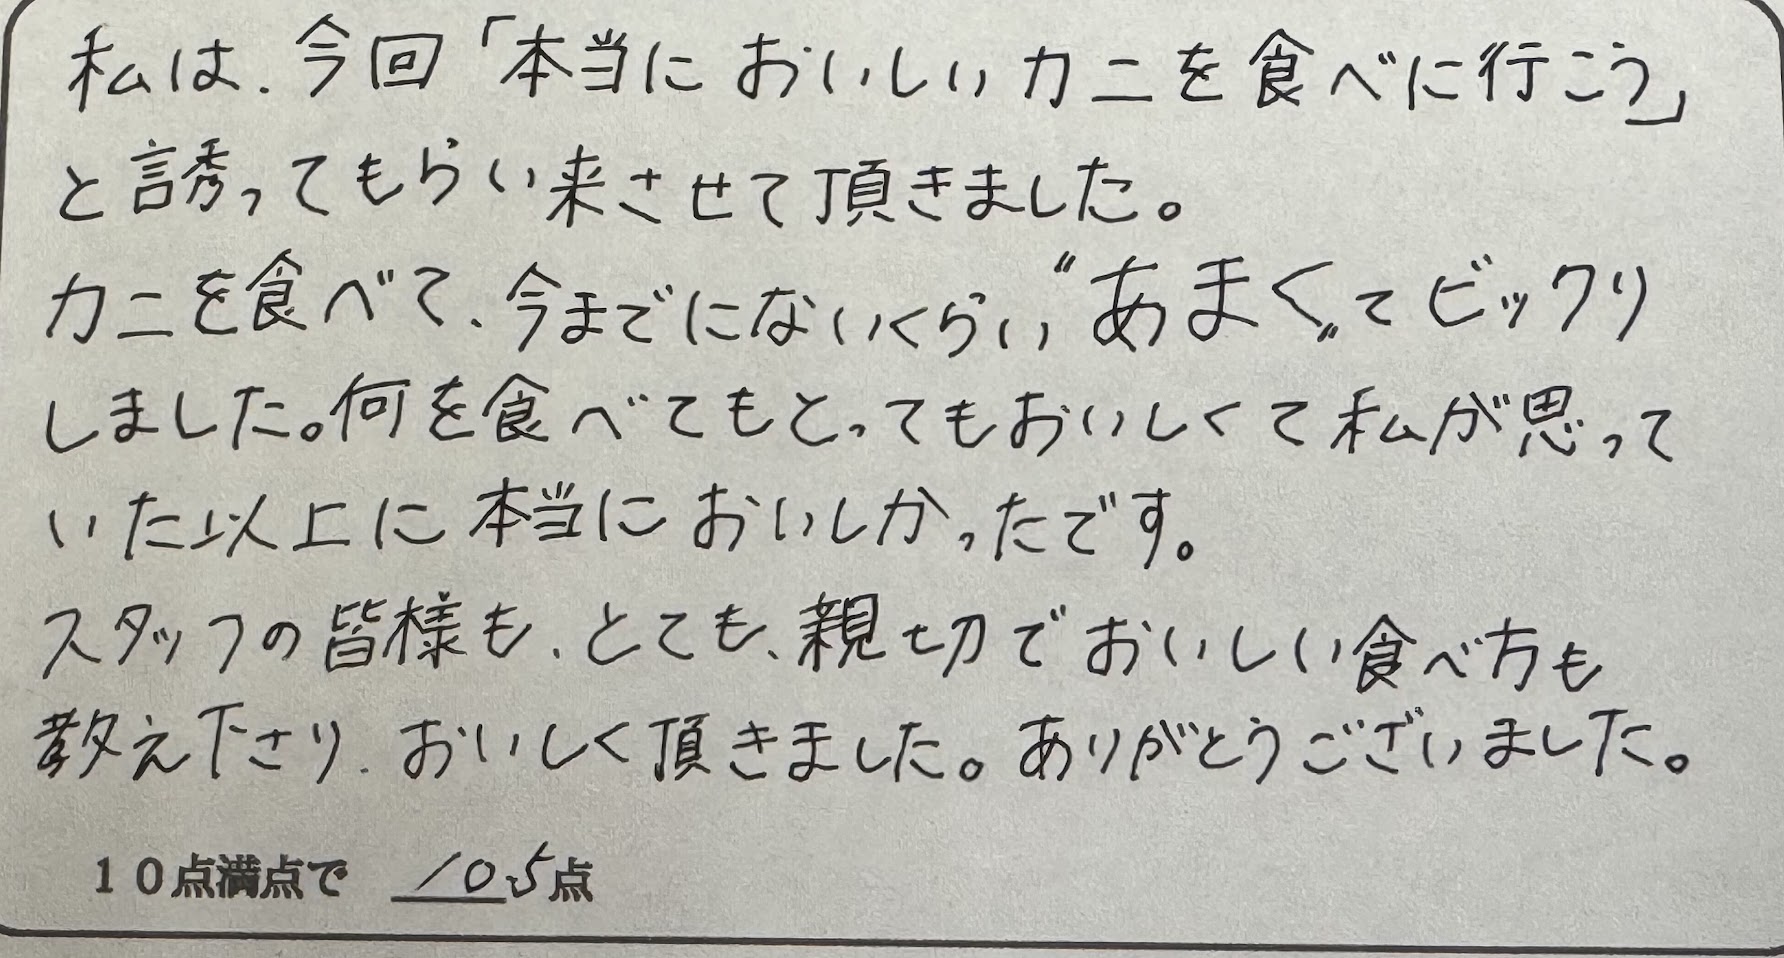 私は、今回「本当においしいカニを食べに行こう」
と誘ってもらい来させて頂きました。
カニを食べて、今までにないくらい“あまく”てビックリ
しました。何を食べてもとってもおいしくて私が思って
いた以上に本当においしかったです。
スタッフの皆様も、とても、親切でおいしい食べ方も
教え下さり、おいしく頂きました。ありがとうございました。
10点満点で 10.5点